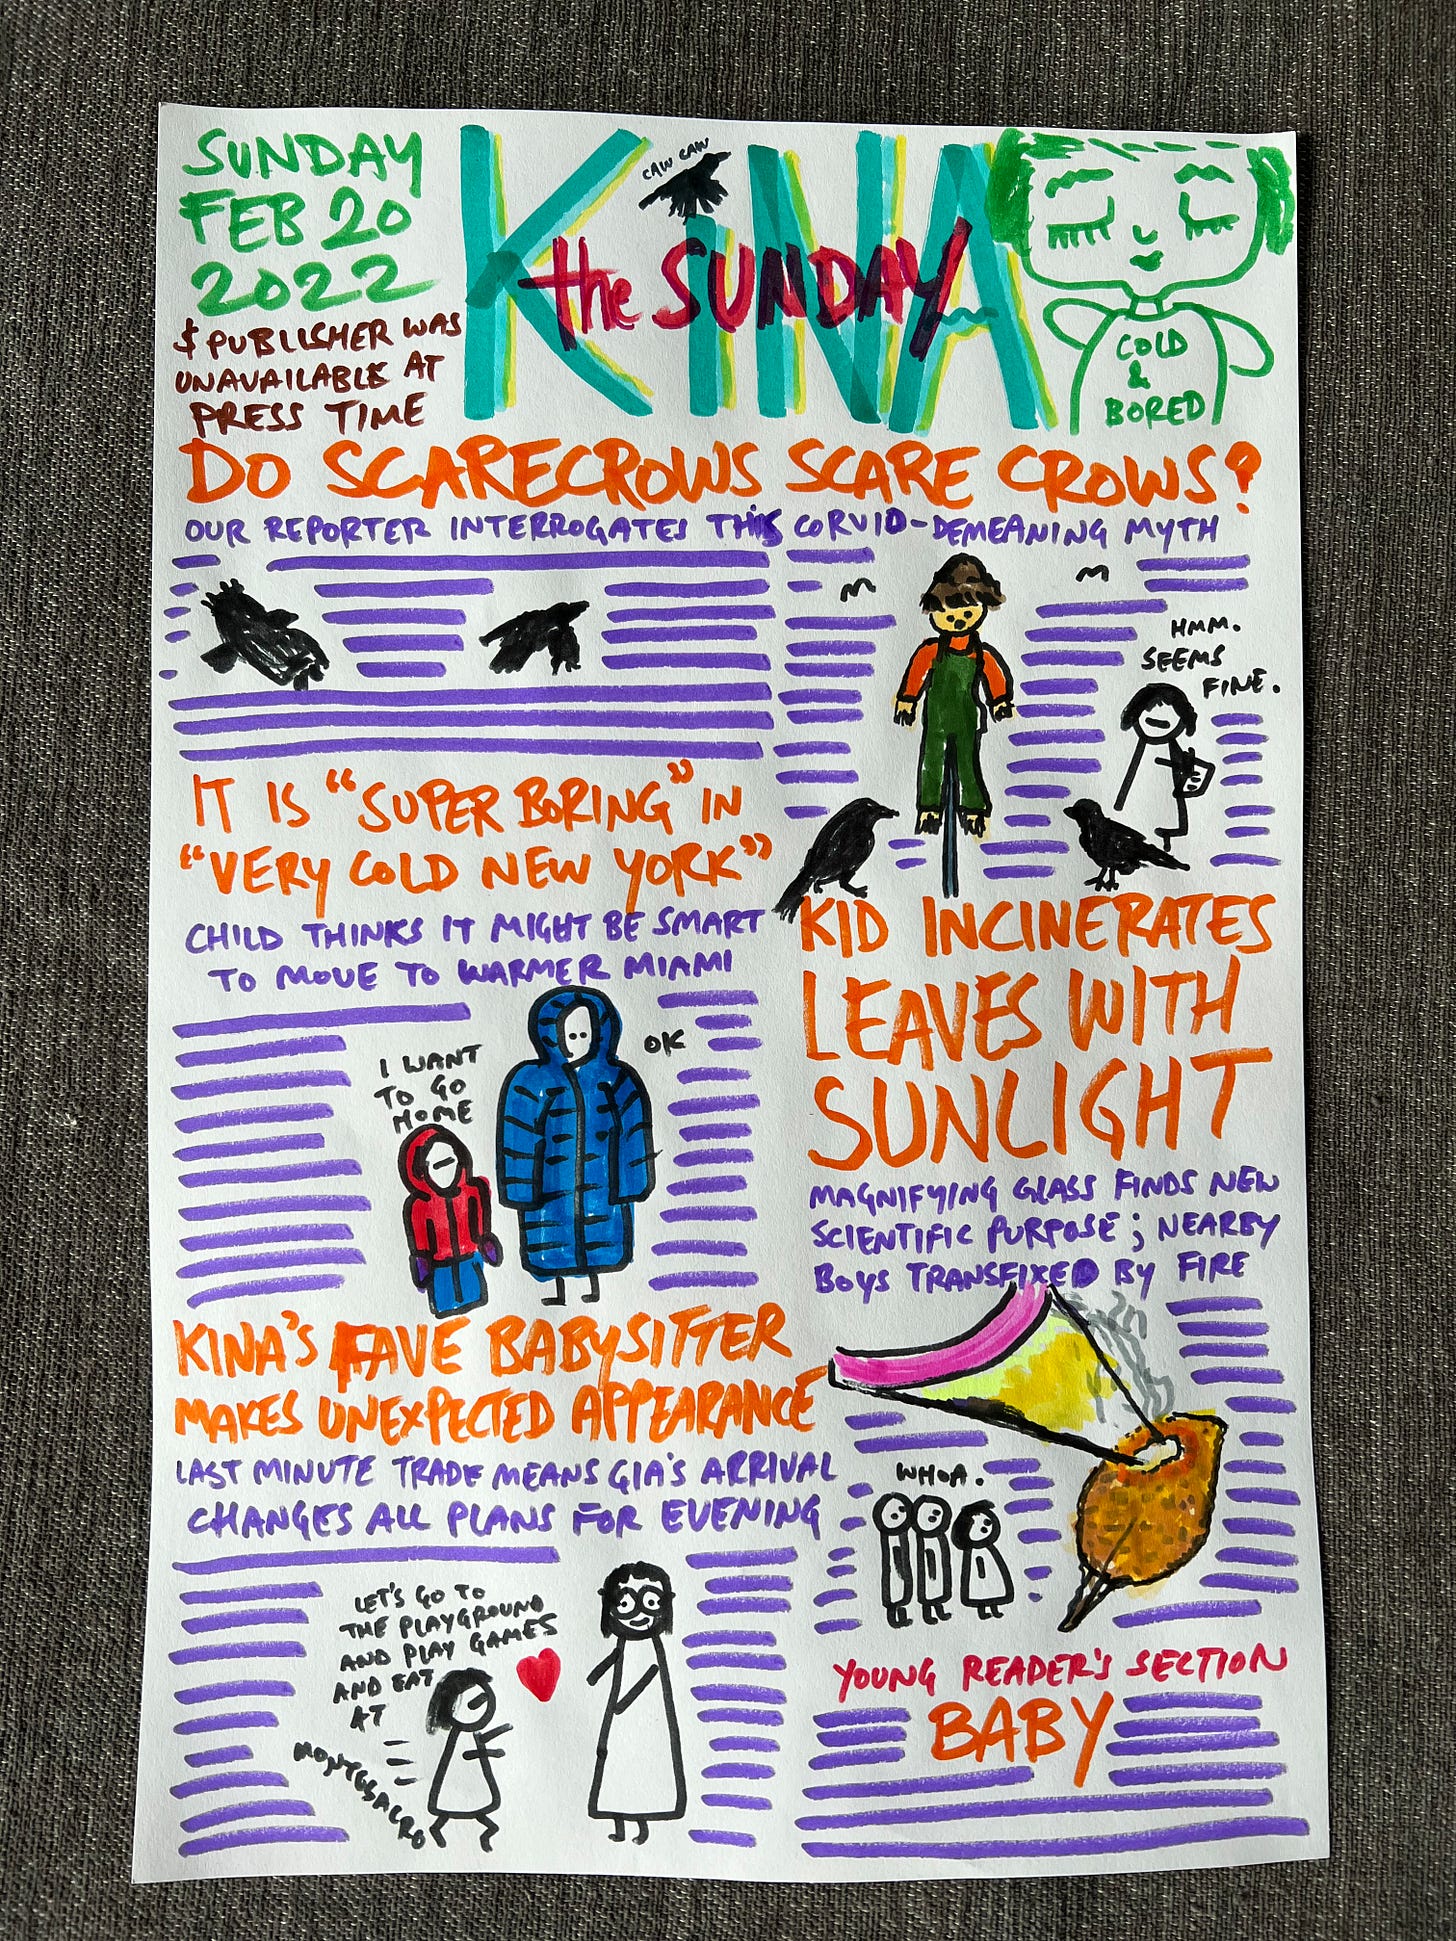 SUNDAY
FEB 20
2022
$ PUBLISHER WAS
UNAVAILABLE AT
PRESS TIME
CAW CAW
KiNA
the SUNDAY
COLD
&
BORED
DO SCARECROWS SCARE CROWS?
OUR REPORTER INTERROGATES THIS CORVID-DEMEANING MYTH
HMM.
SEEMS
FINE.
IT IS "SUPER BORING" IN
"VERY COLD NEW YORK"
CHILD THINKS IT MIGHT BE SMART
TO MOVE TO WARMER MIAMI
I WANT
TO GO
HOME
OK
KID INCINERATES
LEAVES WITH
SUNLIGHT
MAGNIFYING GLASS FINDS NEW
SCIENTIFIC PURPOSE; NEARBY
BOYS TRANSFIXED BY FIRE
WHOA.
KINA'S FAVE BABYSITTER
MAKES UNEXPECTED APPEARANCE
LAST MINUTE TRADE MEANS GIA'S ARRIVAL
CHANGES ALL PLANS FOR EVENING
LET'S GO TO
THE PLAYGROUND
AND PLAY GAMES
AND EAT
AT
MONTESACRO
YOUNG READER'S SECTION
BABY